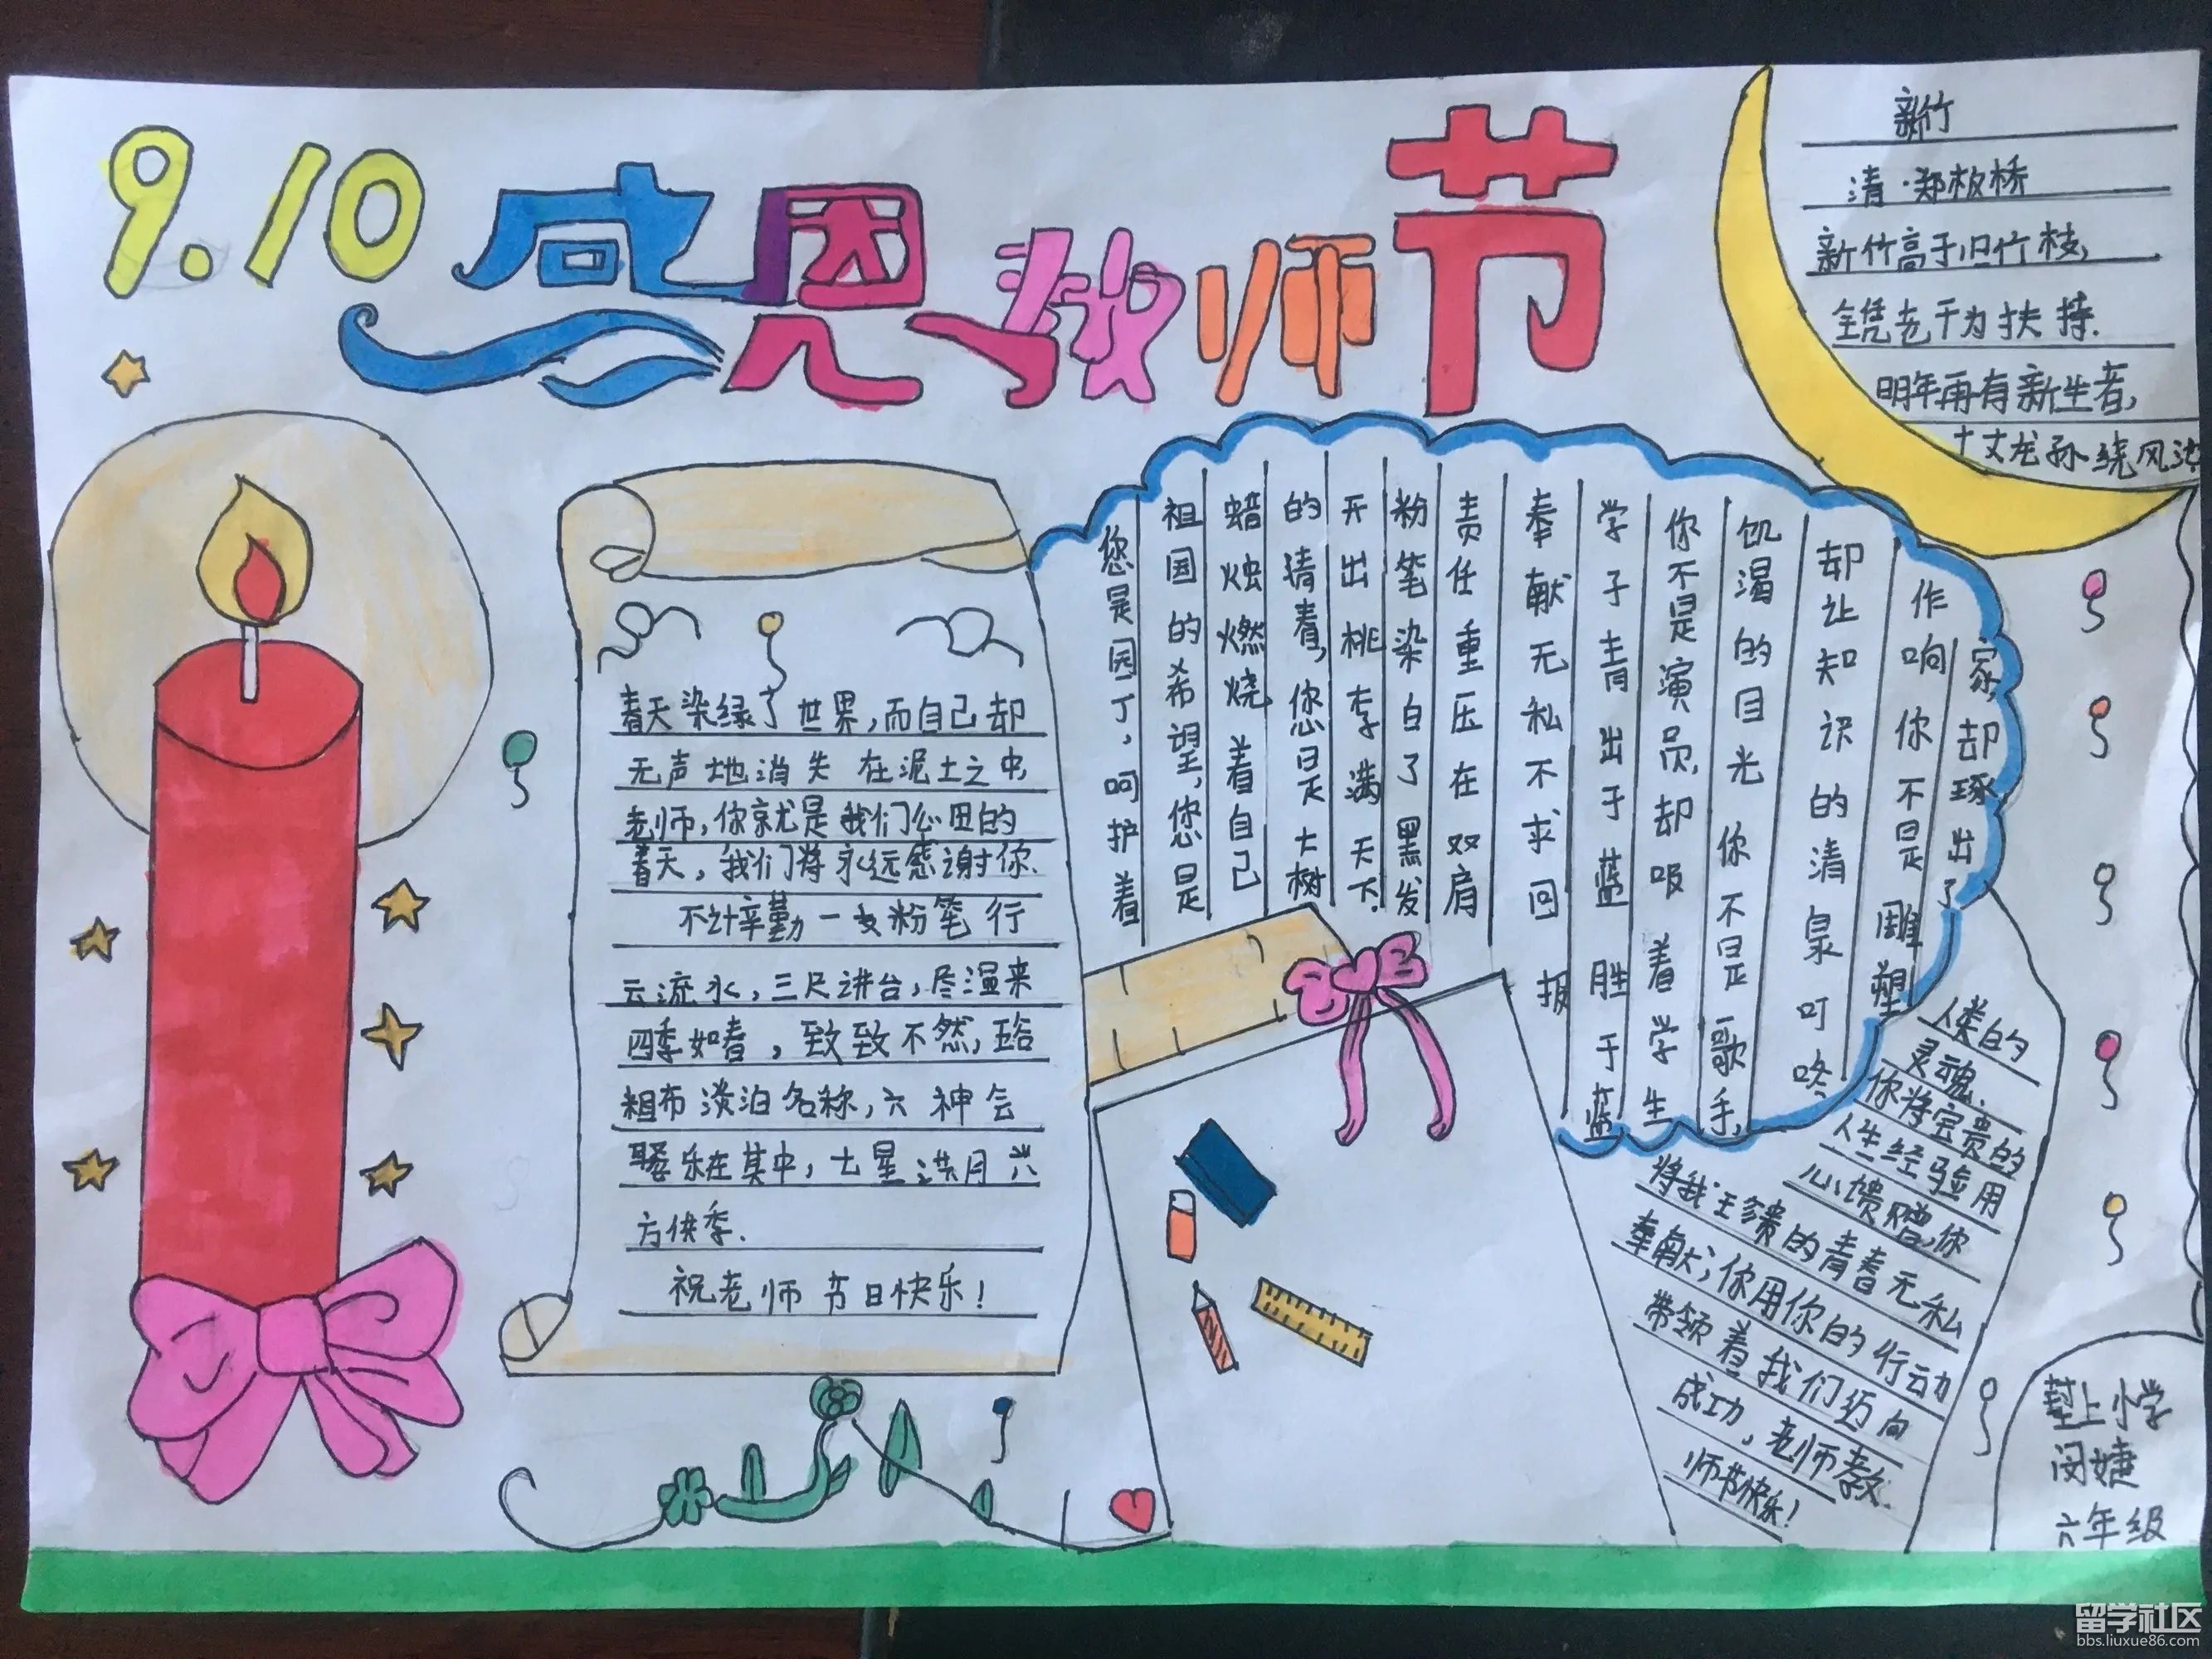 9.10 感恩教师节
新竹
清·郑板桥
新竹高于旧竹枝,
全凭老干为扶持.
明年再有新生者,
十丈龙孙绕风池
春天染绿了世界,而自己却
无声地消失在泥土之中,
老师,你就是我们心田的
春天,我们将永远感谢你.
不计辛勤一支粉笔行
云流水,三尺讲台,尽温来
四季如春,致致不然,
粗布淡泊名称,六神会
聚乐在其中,七星洪月六
方供季.
祝老师节日快乐!
您是园丁,呵护着
祖国的希望,您是
蜡烛燃烧着自己
的清春,您是大树
开出桃李满天下.
粉笔染白了黑发
责任重压在双肩
奉献无私不求回报
学子青出于蓝胜于蓝
你不是演员,却吸着学生
饥渴的目光你不是歌手,
却让知识的清泉叮咚
作响你不是雕塑
家,却琢出了
人类的
灵魂.
你将宝贵的
人生经验用
心馈赠,你
将我王贵的青春无私
奉献,你用你的行动
带领着我们迈向
成功,老师教
师节快乐!
上小学
闵婕
六年级
留学社区
bbs.liuxue86.com